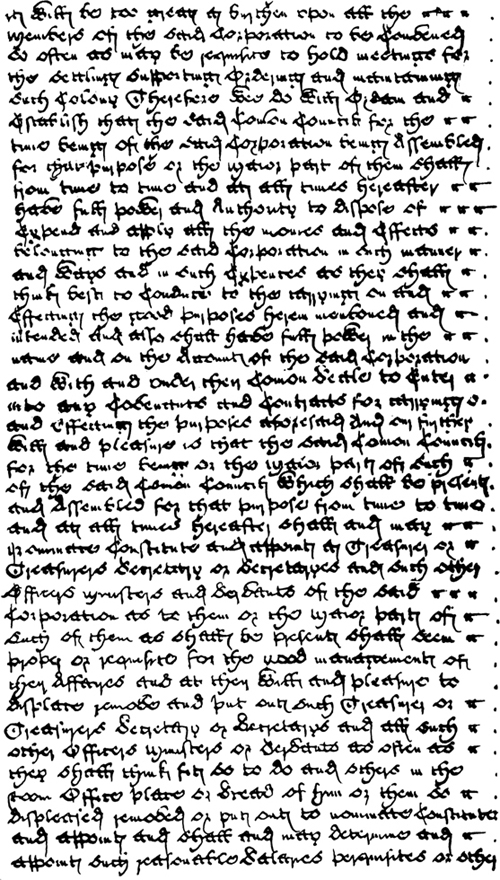 it Will be too great a burthen upon all the
members of the said Corporation to be Convened
so often as may be requisite to hold meetings for
the setling supporting Ordering and maintaining
such Colony Therefore Wee do Will Ordain and
Establish that the said Comon Councill for the
time being of the said Corporation being Assembled
for that purpose or the major part of them shall
from time to time and at all times hereafter
have full power and Authority to dispose of
Expend and apply all the monies and Effects
belonging to the said Corporation in such manner
and Ways and in such Expences as they shall
think best to Conduce to the carrying on and
Effecting the good purposes herein mentioned and
intended and also shall have full power in the
name and on the Account of the said Corporation
and With and under their Comon Seale to Enter
into any Covenants and Contracts for carrying o
and Effecting the purposes aforesaid And on further
Will and pleasure is that the said Comon Councill
for the time being or the major part of such
of the said Comon Councill Which shall be present
and Assembled for that purpose from time to time
and at all times hereafter shall and may
nominate Constitute and appoint a Treasurer or
Treasurers Secretary or Secretaryes and such other
Officers ministers and Servants of the said
Corporation as to them or the major part of
such of them as shall be present shall seem
proper or requisite for the good managements of
their Affaires and at their Will and pleasure to
displace remove and put out such Treasurer or
Treasurers Secretary or Secretarys and all such
other Officers ministers or Servants as often as
they shall think fit so to do and others in the
room Office place or stead of him or them so
displaced removed or put out to nominate Constitute
and appoint and shall and may determine and
appoint such reasonable Salaries perquisites or other